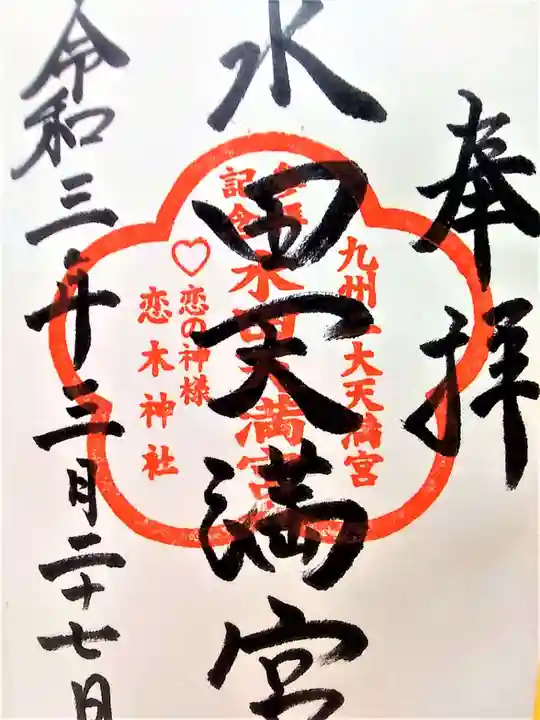 奉拝
水田天満宮
令和三年三月二十七日
九州二大天満宮
水田天満宮
参拝記念
♡恋の神様
恋木神社